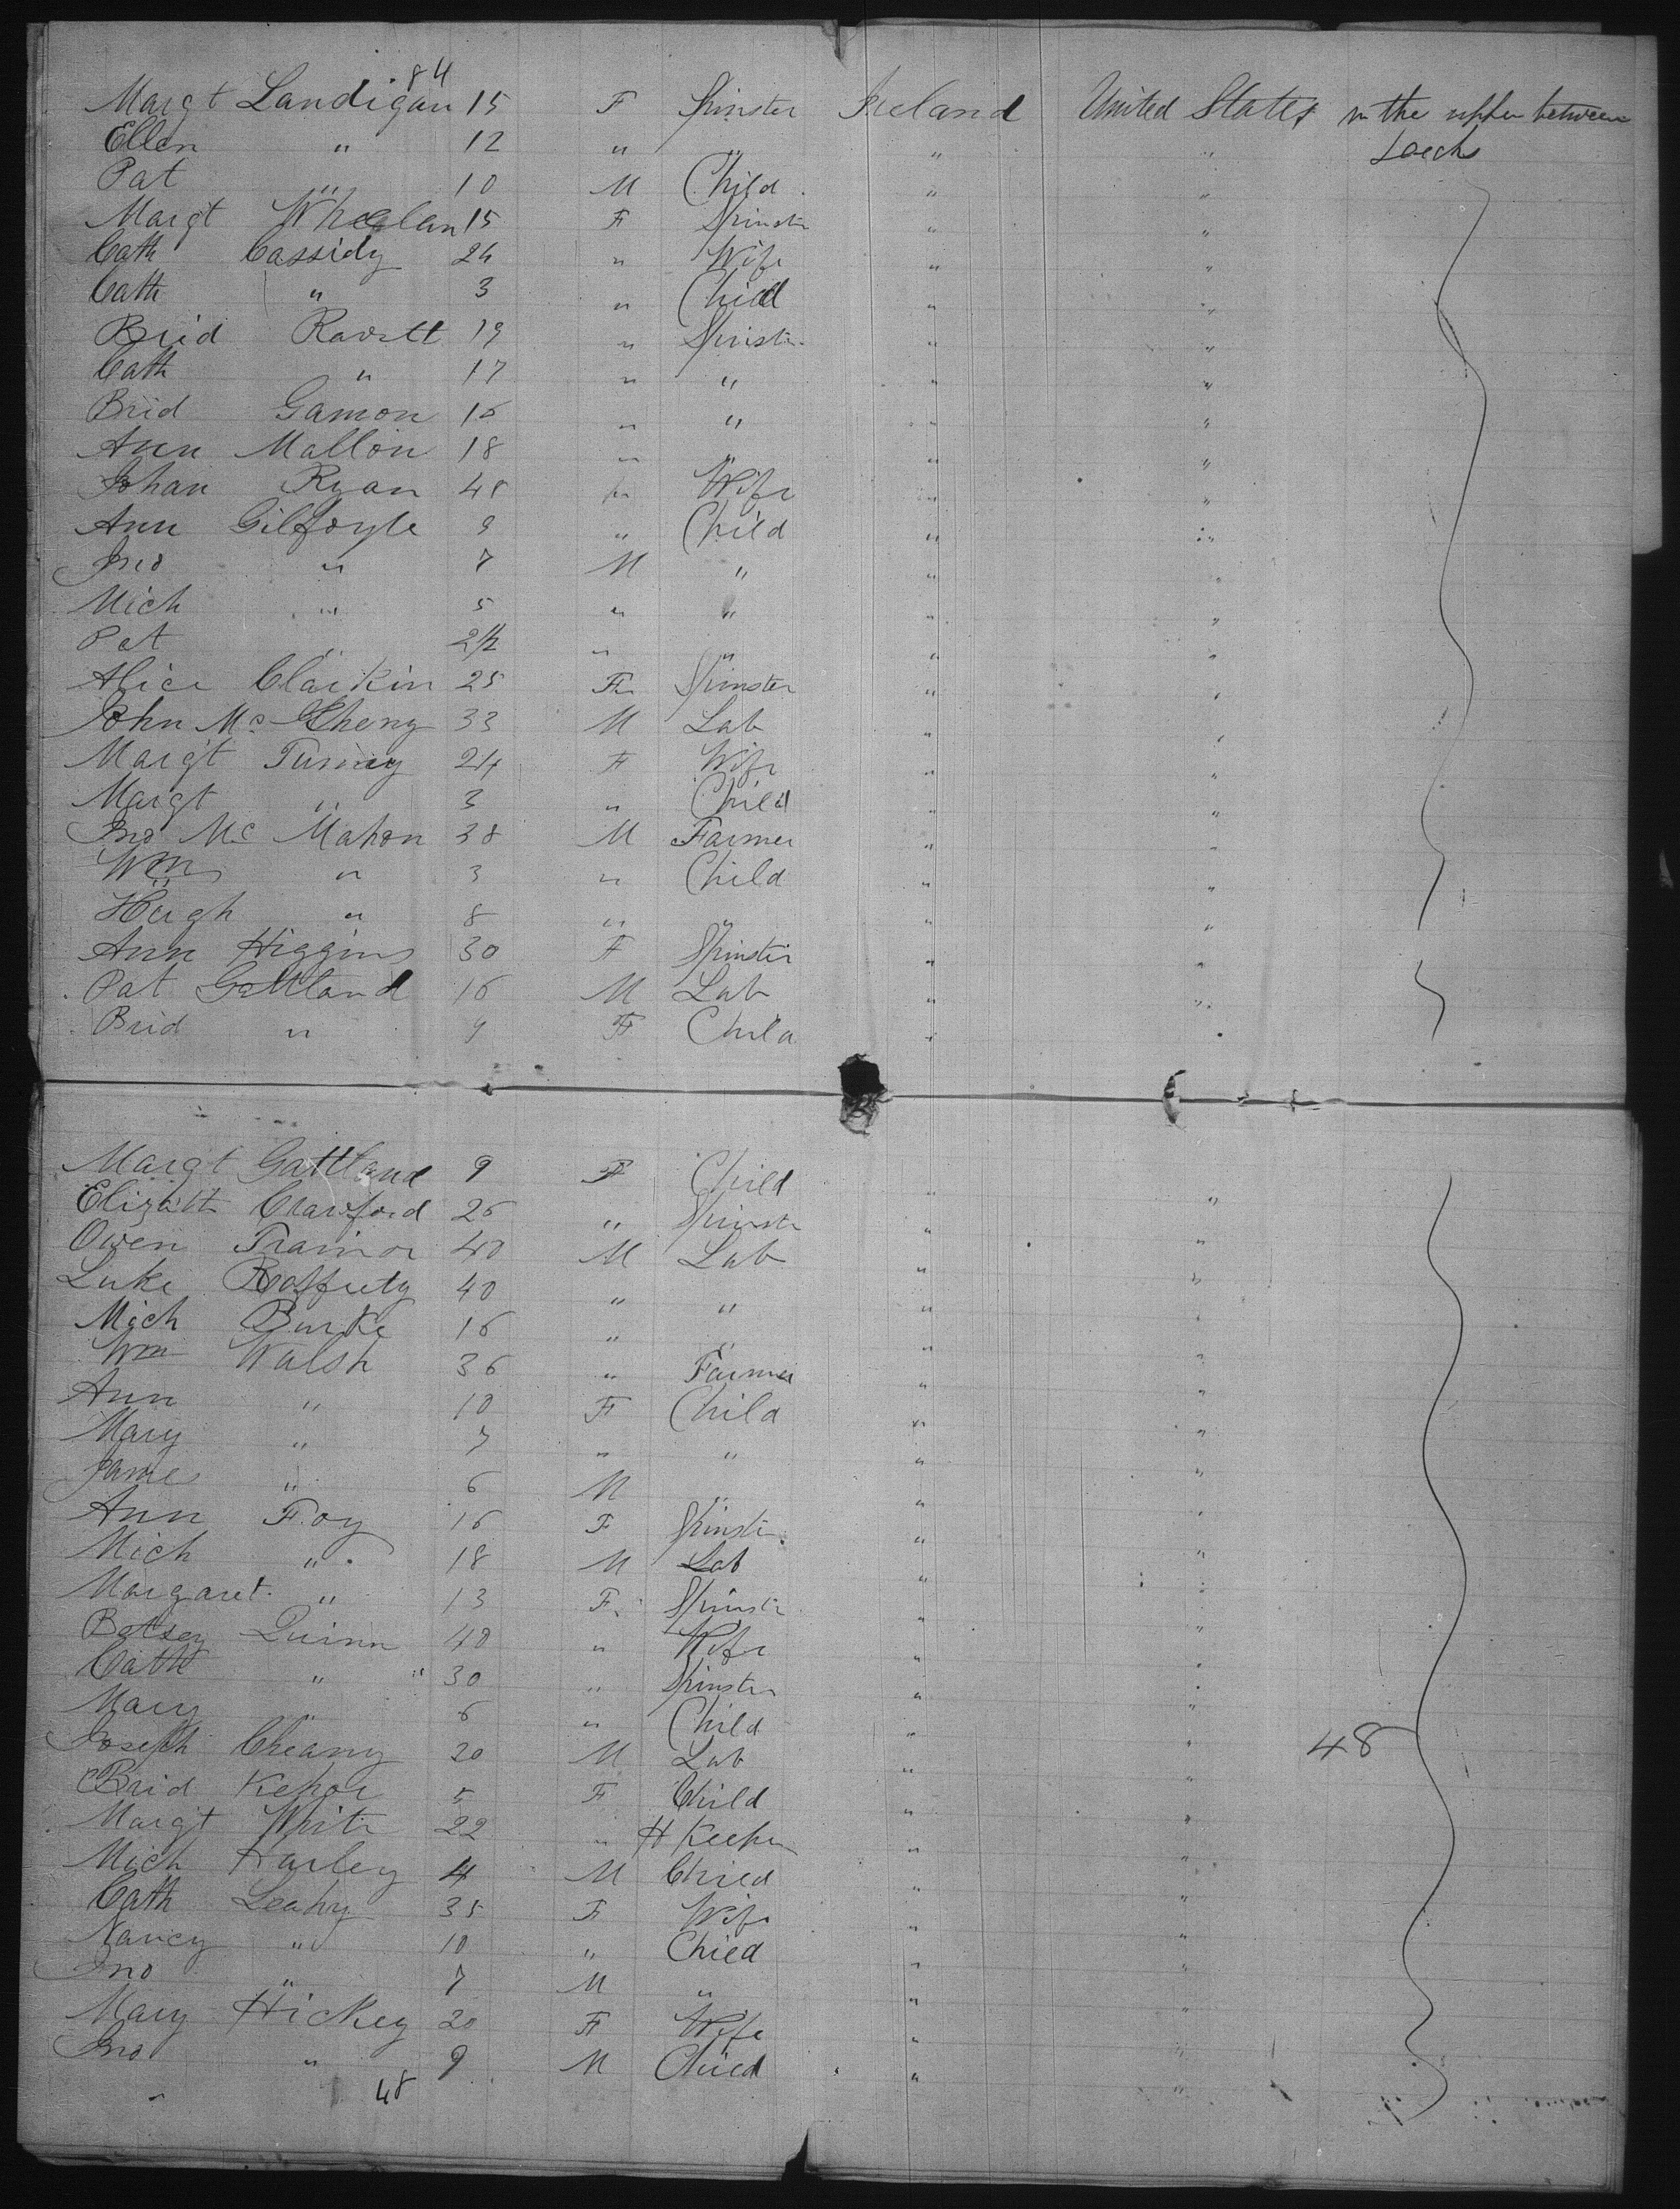 84
Margt Landigan 15 F Spinster Ireland United States in the upper between
Ellen " 12 " " " " Decks
Pat " 10 M Child " "
Margt Wheelan 15 F Spinster " "
Cath Cassidy 24 " Wife " "
Cath " 3 " Child " "
Brid 19 " Spinstr " "
Cath " 17 " " " "
Brid Gamon 16 " " " "
Ann Mallon 18 " " " "
Johan Ryan 48 " Wife " "
Ann Gilfoyle 9 " Child " "
Jno " 7 M " " "
Mich " 5 " " " "
Pat " " " " "
Alice Clarkin 25 F Spinster " "
John Mc 33 M Lab " "
Margt 24 F Wife " "
Margt " 3 " Child " "
Jno Mc Mahon 38 M Farmer " "
Wm " 3 " Child " "
Hugh " 8 " " " "
Ann Higgins 30 F Spinster " "
Pat Gattland 16 M Lab " "
Brid " 9 F Child " "
Margt Gattland 9 F Child " "
Elizabth Crawford 26 " Spinstr " "
Owen Trainor 40 M Lab " "
Luke Raffrety 40 " " " "
Mich Burke 16 " " " "
Wm Walsh 36 " Farmer " "
Ann " 10 F Child " "
Mary " 7 " " " "
James " 6 M " " "
Ann Foy 16 F Spinstr " "
Mich " 18 M Lab " "
Margaret " 13 F Spinstr " "
Betsey Quinn 40 " Wife " "
Cath " " 30 " Spinster " "
Mary " 6 " Child " "
Joseph Cheany 20 M Lab " " 48
Brid Kehoe 5 F Child " "
Margt White 22 " H Keeper " "
Mich Harley 4 M Child " "
Cath Leahy 35 F Wife " "
Nancy " 10 " Child " "
Jno " 7 M " " "
Mary Hickey 20 F Wife " "
Jno " 9 M Child " "
48